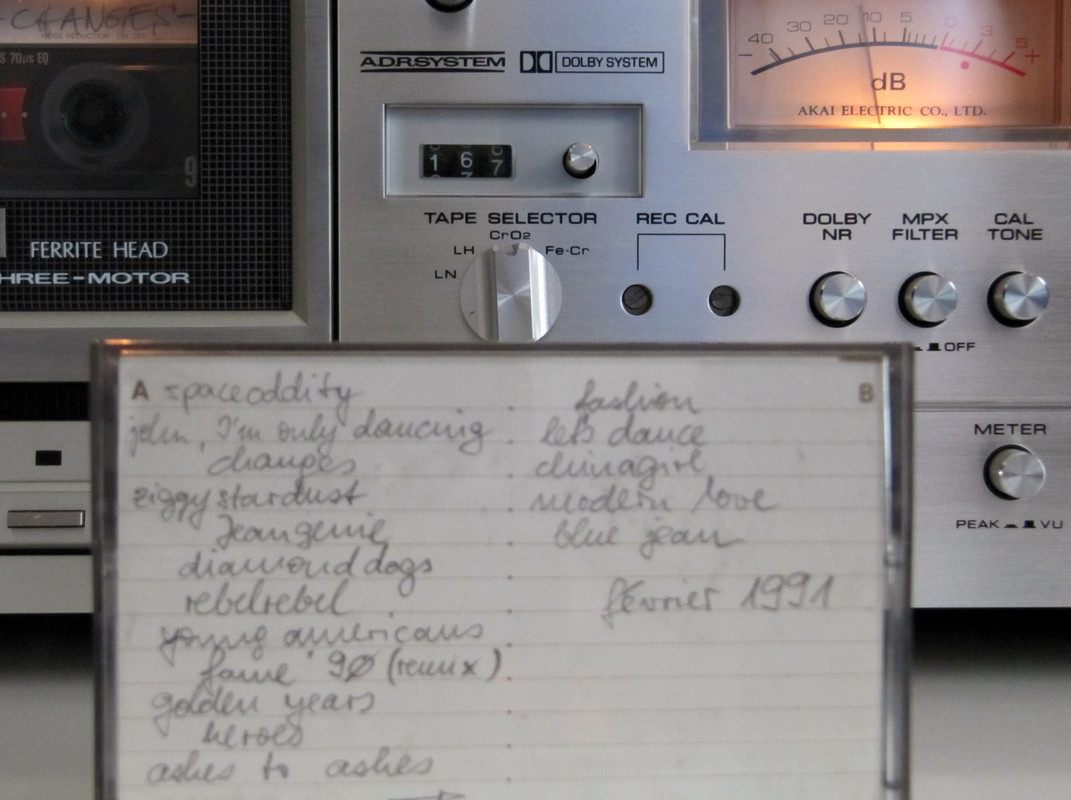 -CHANGES-
NOISE REDUCTION ON OFF
S 70µs EQ
9
FERRITE HEAD
THREE-MOTOR
A.D.R.SYSTEM
DOLBY SYSTEM
1 6 7
TAPE SELECTOR
LN LH CrO2 Fe-Cr
REC CAL
40 30 20 10 5 0 3 5 +
dB
AKAI ELECTRIC CO., LTD.
DOLBY NR
MPX FILTER
CAL TONE
OFF
METER
PEAK VU
A
spaceoddity
john, I'm only dancing
changes
ziggystardust
Jeangenie
diamond dogs
rebelrebel
young americans
fame '90 (remix)
golden years
heroes
ashes to ashes
B
fashion
lets dance
chinagirl
modern love
blue jean
février 1991